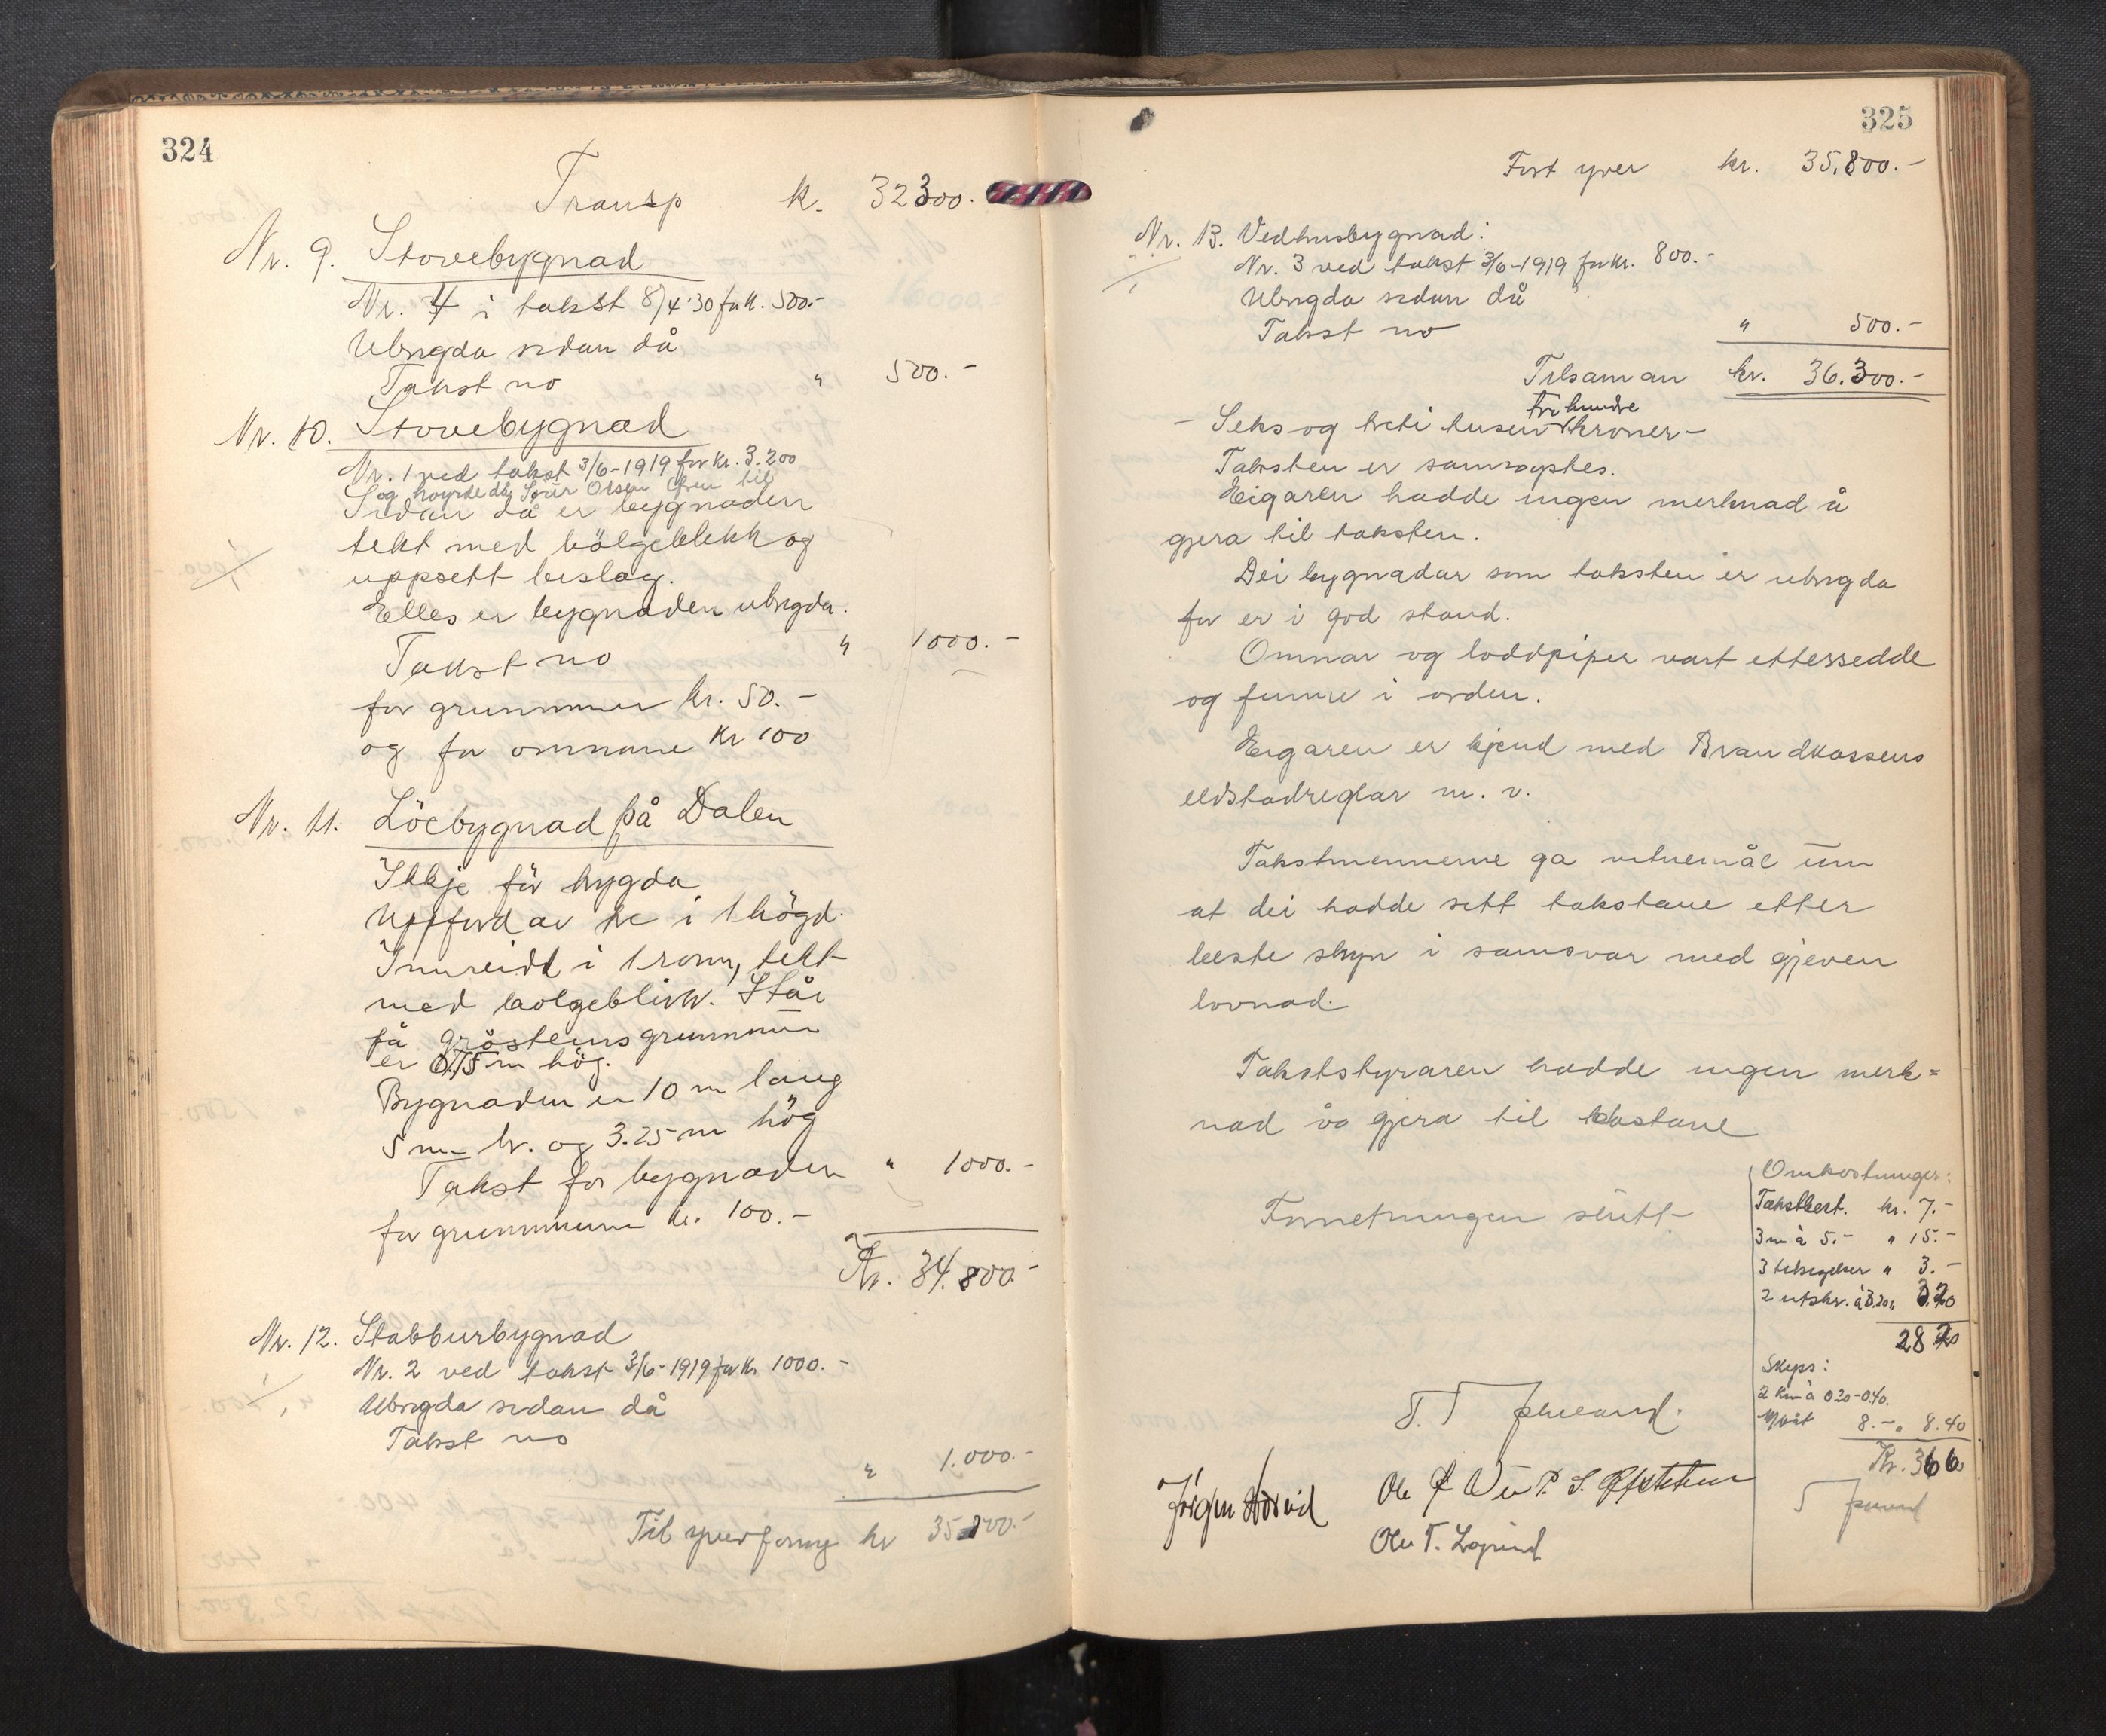 324
Transp k. 32300.
Nr. 9. Stovebygnad
Nr. 4 i takst 8/4-30 for kr. 500.-
Ubrigda sidan då
Takst no " 500.-
Nr. 10. Stovebygnad
Nr. 1 ved takst 3/6-1919 for kr. 3.200
og høyrde då Olsen til
Sidan då er bygnaden
tekt med bölgeblekk og
uppsett beslag.
Elles er bygnaden ubrigda.
Takst no " 1000.-
for grunnmur kr. 50.-
og for omnane Kr 100
Nr. 11. Löebygnad på Dalen
Ikkje för trygda
Uppförd av tre i 1 högd.
Innreidt i 1 rom, tekt
med bolgeblikk. Står
på gråsteinsgrunnmur
er 0.75 m hög.
Bygnaden er 10 m lang
5 m br. og 3.25 m hög
Takst for bygnaden " 1000.-
for grunnmuren kr. 100.-
Kr. 34.800.-
Nr. 12. Stabburbygnad
Nr. 2 ved takst 3/6-1919 for kr. 1000.-
Ubrigda sidan då
Takst no
" 1.000.-
Til yverföring kr 35.800.-
325
Fört yver kr. 35.800.-
Nr. 13. Vedhusbygnad:
Nr. 3 ved takst 3/6-1919 for kr. 800.-
Ubrigda sidan då
Takst no " 500.-
Tilsaman kr. 36.300.-
tre hundre
- Seks og treti tusen kroner-
Taksten er samröystes.
Eigaren hadde ingen merknad å
gjera til taksten.
Dei bygnadar som taksten er ubrigda
for er i god stand.
Omnar og loddpiper vart ettersedde
og funne i orden.
Eigaren er kjend med Brandkassens
eldstadreglar m. v.
Takstmennerne ga vitnemål um
at dei hadde sett takstane etter
beste skyn i samsvar med gjeven
lovnad.
Takststyraren hadde ingen merk=
nad å gjera til takstane
Omkostninger:
Takstbert. kr. 7.-
3 m à 5.- " 15.-
Forretningen slutt
3 tilsegelser " 3.-
2 utskr. à 3.20
28 20
Skyss:
2 km à 0 20-0.40.
8.- " 8.40
T. T.
Kr. 36 60
Jörgen
Ole T.